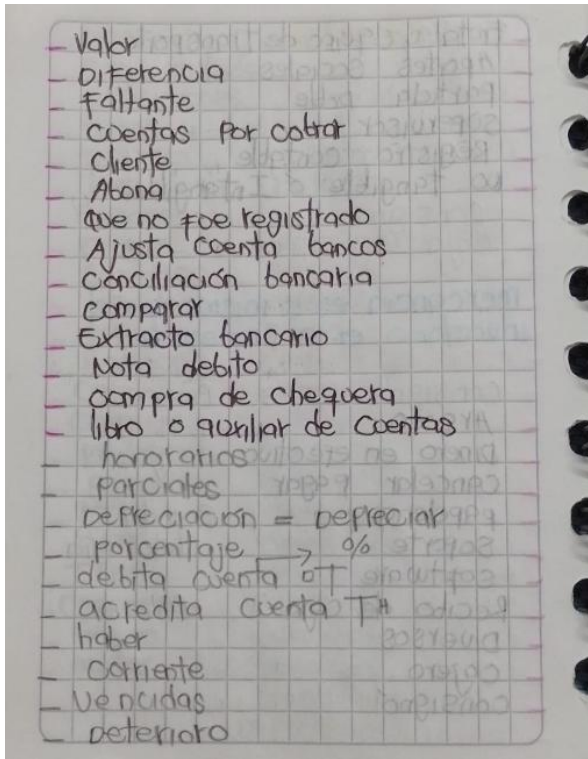 - Valor
- Diferencia
- Faltante
- cuentas por cobrar
- cliente
- Abona
- que no fue registrado
- Ajusta cuenta bancos
- conciliación bancaria
- comparar
- Extracto bancario
- Nota debito
- compra de chequera
- libro o auxiliar de cuentas
- honorarios
- parciales
- Depreciación = Depreciar
- porcentaje → %
- debita cuenta
- acredita cuenta
- haber
- corriente
- vencidas
- Deterioro